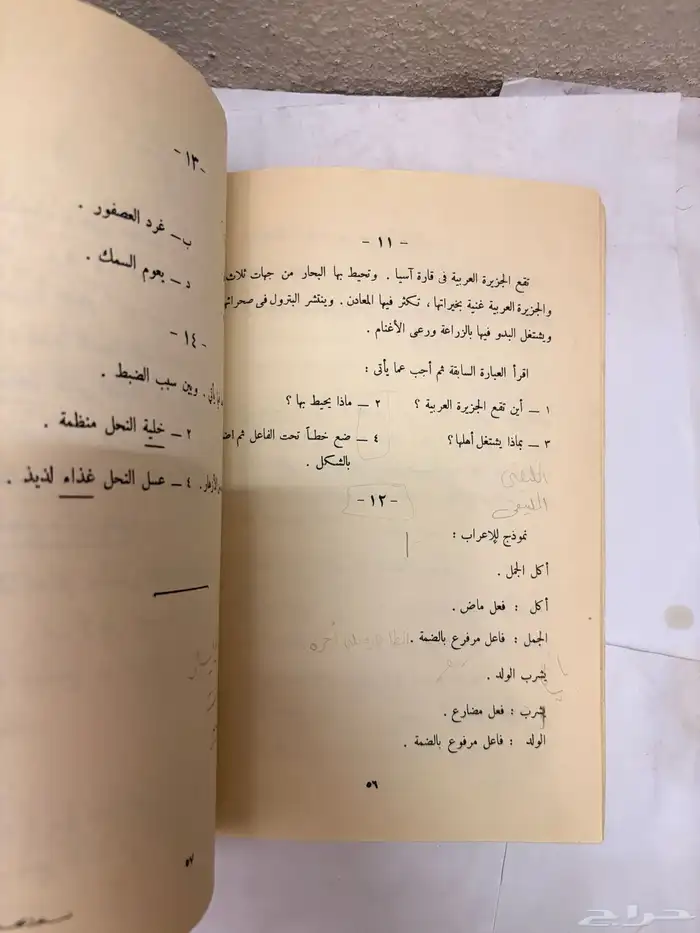 - ١١ -
تقع الجزيرة العربية فى قارة آسيا . وتحيط بها البحار من جهات ثلاث
والجزيرة العربية غنية بخيراتها ، تكثر فيها المعادن . وينتشر البترول فى صحرائها
ويشتغل البدو فيها بالزراعة ورعى الأغنام .
اقرأ العبارة السابقة ثم أجب عما يأتى :
١ — أين تقع الجزيرة العربية ؟ ٢ — ماذا يحيط بها ؟
٣ — بماذا يشتغل أهلها ؟ ٤ — ضع خطاً تحت الفاعل ثم
بالشكل .
- ١٢ -
نموذج للإعراب :
أكل الجمل .
أكل : فعل ماض .
الجمل : فاعل مرفوع بالضمة . الظاهرة على آخره
يشرب الولد .
يشرب : فعل مضارع .
الولد : فاعل مرفوع بالضمة .
٥٦
- ١٣ -
ب — غرد العصفور .
د — يعوم السمك .
- ١٤ -
وبين سبب الضبط .
٢ — خلية النحل منظمة .
٤ — عسل النحل غذاء لذيذ .
٥٧
حراج